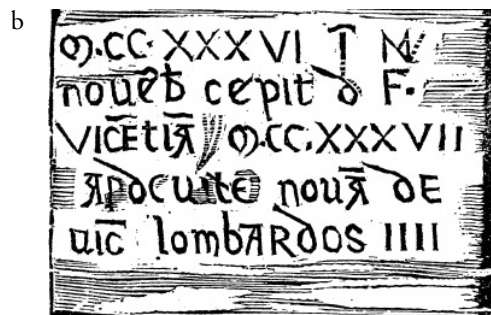 b
M.CC.XXXVI Ī M̄
nouēƀ cepit d F.
VICĒTIĀ M.CC.XXXVII
APD CUITE nouĀ dE
uiC̄ lombARdOS IIII